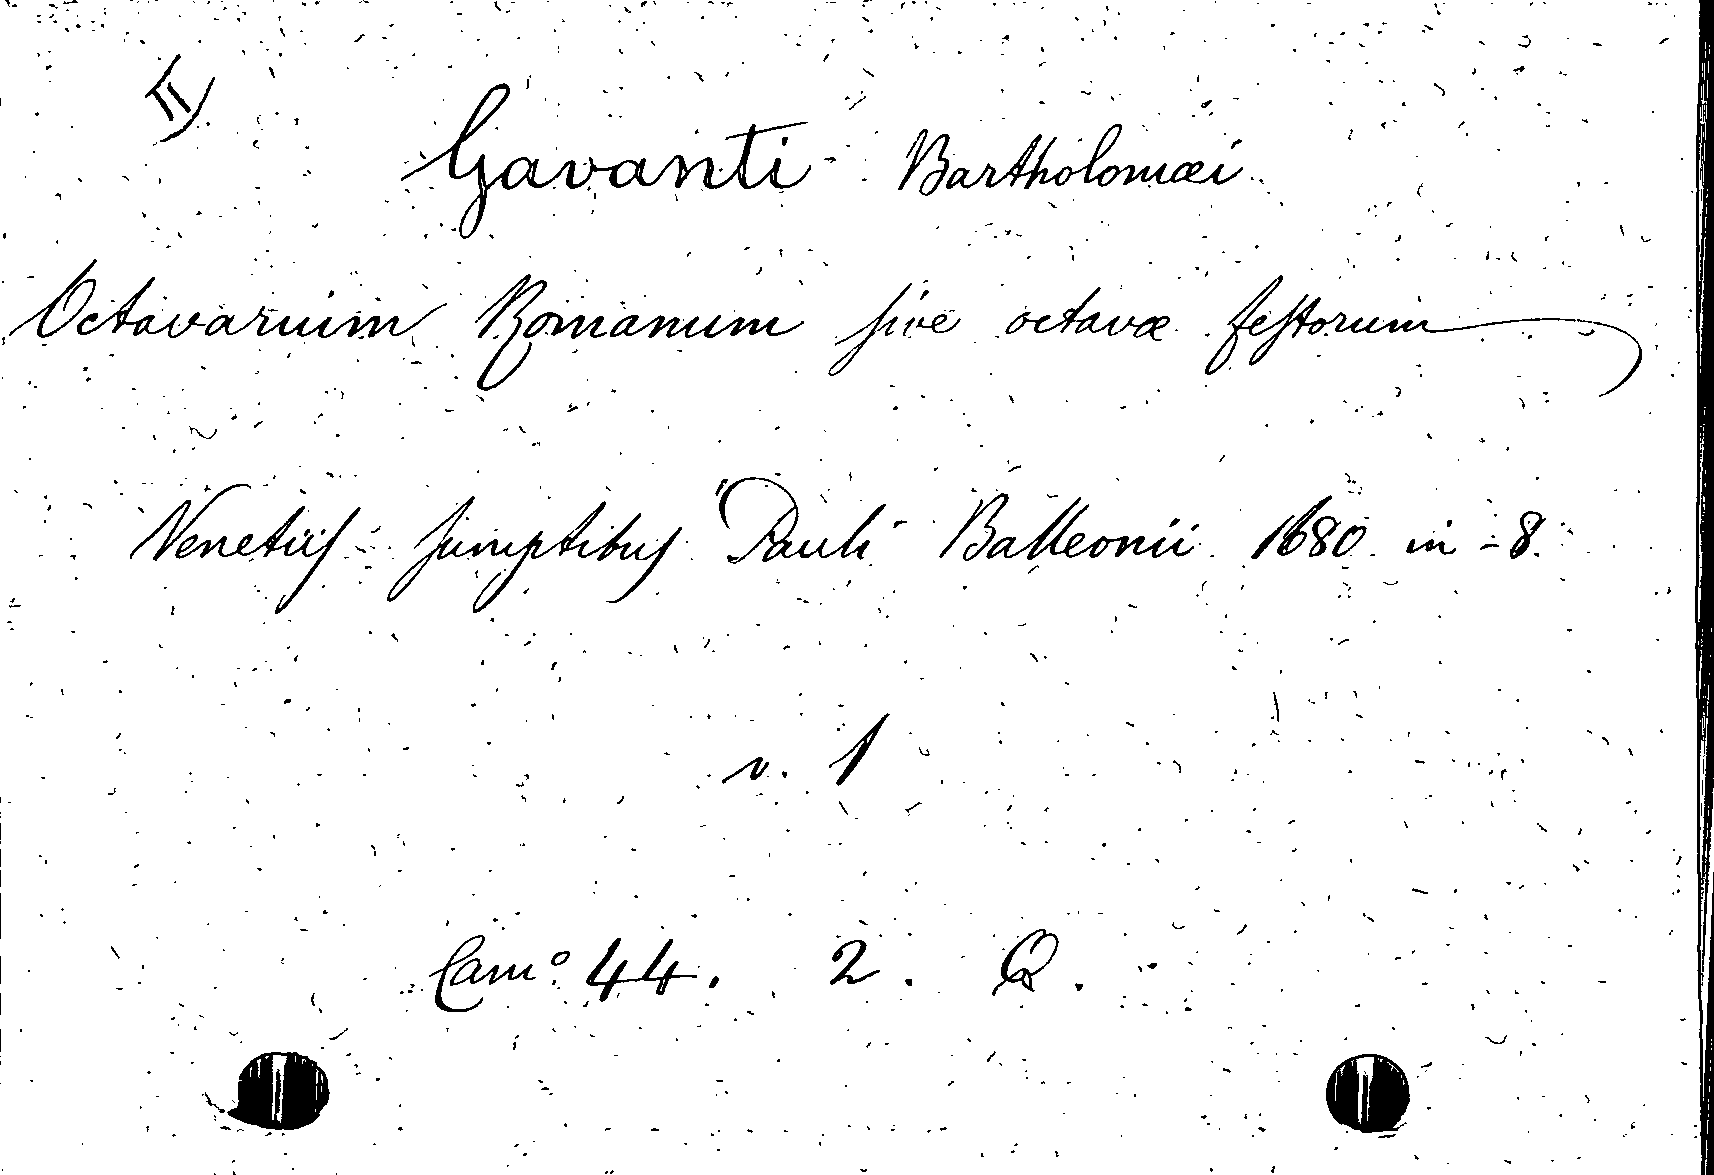 II
Gavanti Bartholomæi
Octavarium Romanum sive octavæ festorum
Venetiis sumptibus Pauli Balleonii 1680 in-8.
v. 1
Cam° 44. 2. Q.